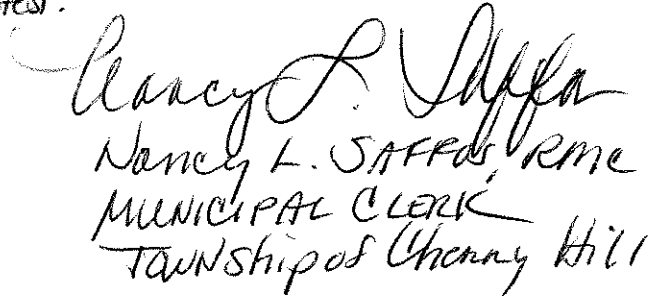 Nancy L. Saffos
Nancy L. SAFFOS, RMC
MUNICIPAL CLERK
TOWNShip of Cherry Hill